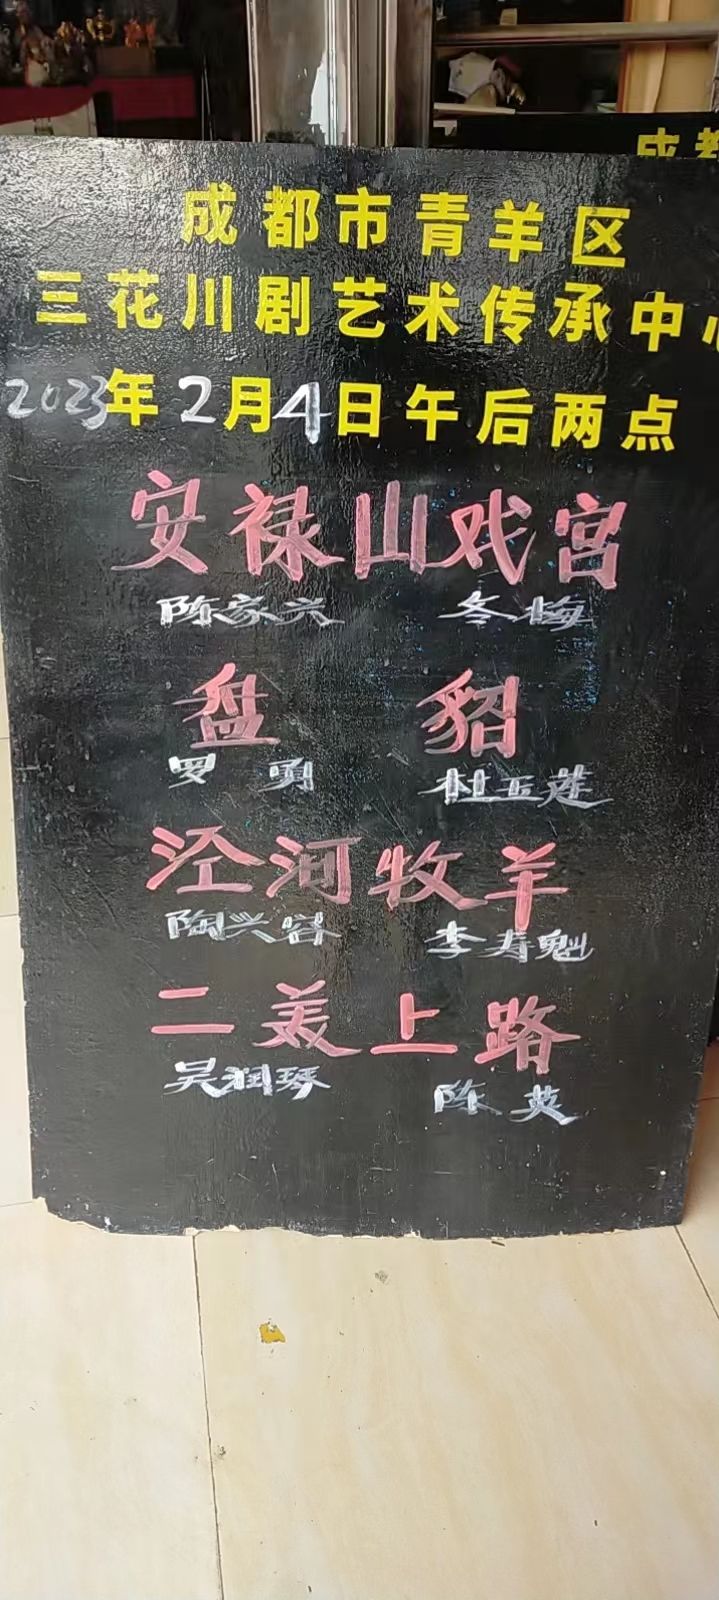 成都
成都市青羊区
三花川剧艺术传承中心
2023年2月4日午后两点
安禄山戏宫
陈家兴 冬梅
盘 貂
罗勇 杜玉莲
泾河牧羊
陶兴容 李寿魁
二美上路
吴润琴 陈英